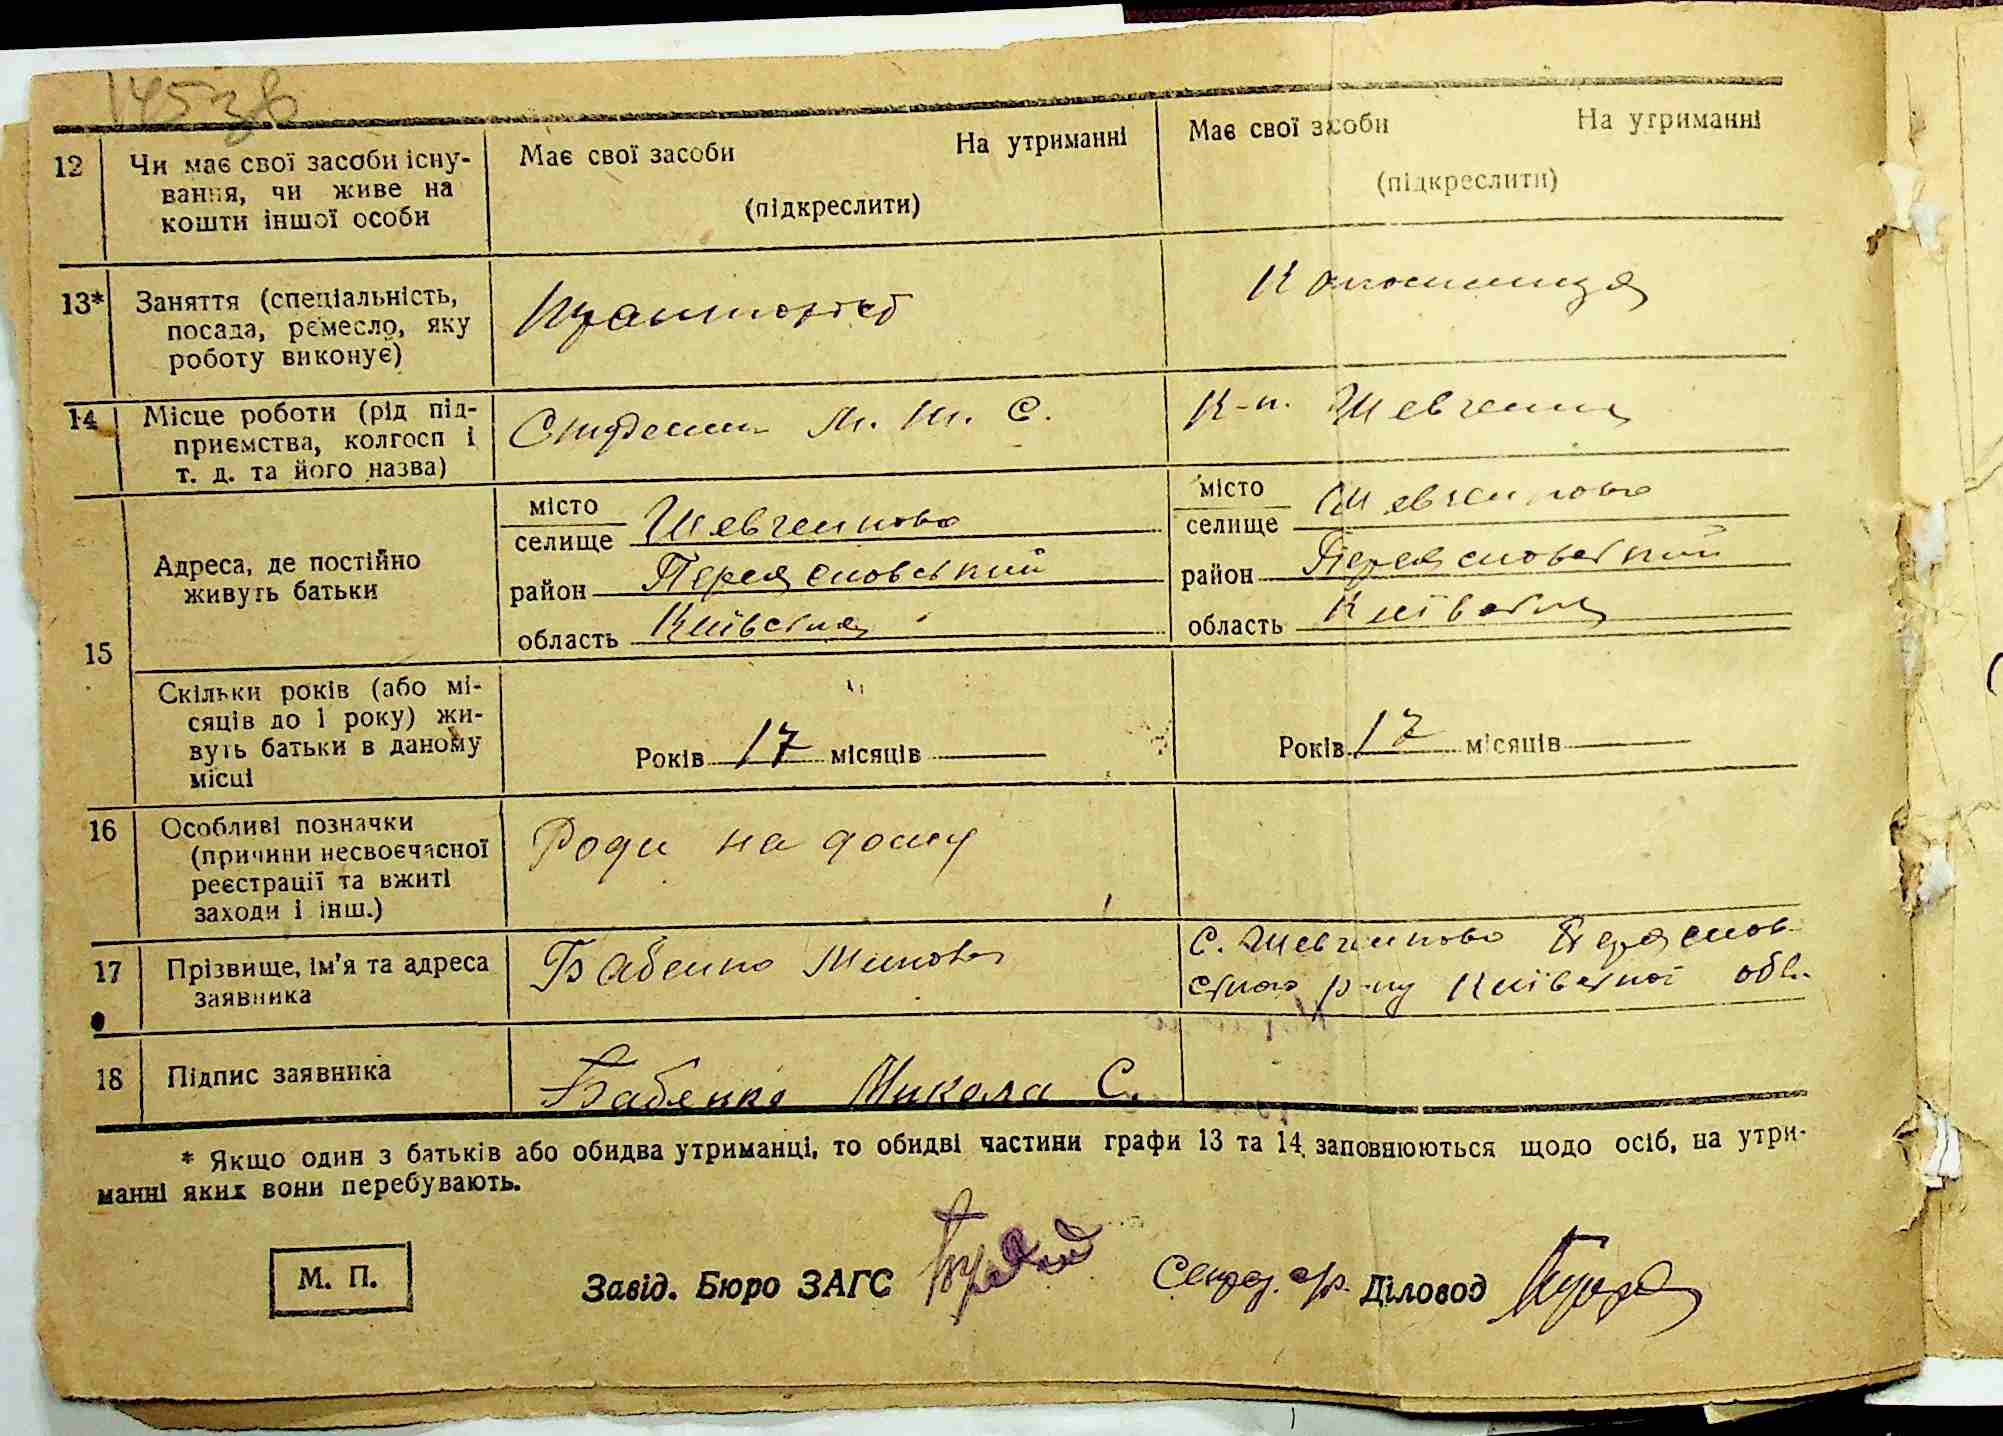 145зв
12 Чи має свої засоби існу-
вання, чи живе на
кошти іншої особи
Має свої засоби На утриманні
(підкреслити)
Має свої засоби На утриманні
(підкреслити)
13* Заняття (спеціальність,
посада, ремесло, яку
роботу виконує)
Тракторіст
Колгоспниця
14 Місце роботи (рід під-
приємства, колгосп і
т. д. та його назва)
М. Т. С.
К-п. Шевченка
15
Адреса, де постійно
живуть батьки
місто
селище Шевченково
район Переясловський
область Київська
місто
селище Шевченково
район Переясловський
область Київська
Скільки років (або мі-
сяців до 1 року) жи-
вуть батьки в даному
місці
Років 17 місяців
Років 17 місяців
16 Особливі позначки
(причини несвоєчасної
реєстрації та вжиті
заходи і інш.)
Роди на дому
17 Прізвище, ім'я та адреса
заявника
Бабенко Микола
С. Шевченково Переяслов-
ского р-ну Київської обл.
18 Підпис заявника
Бабенко Микола С.
* Якщо один з батьків або обидва утриманці, то обидві частини графи 13 та 14 заповнюються щодо осіб, на утри-
манні яких вони перебувають.
М. П.
Завід. Бюро ЗАГС
Секрет. с/р. Діловод